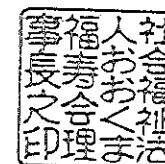 社会福祉法
人おおくま
福寿会理
事長之印